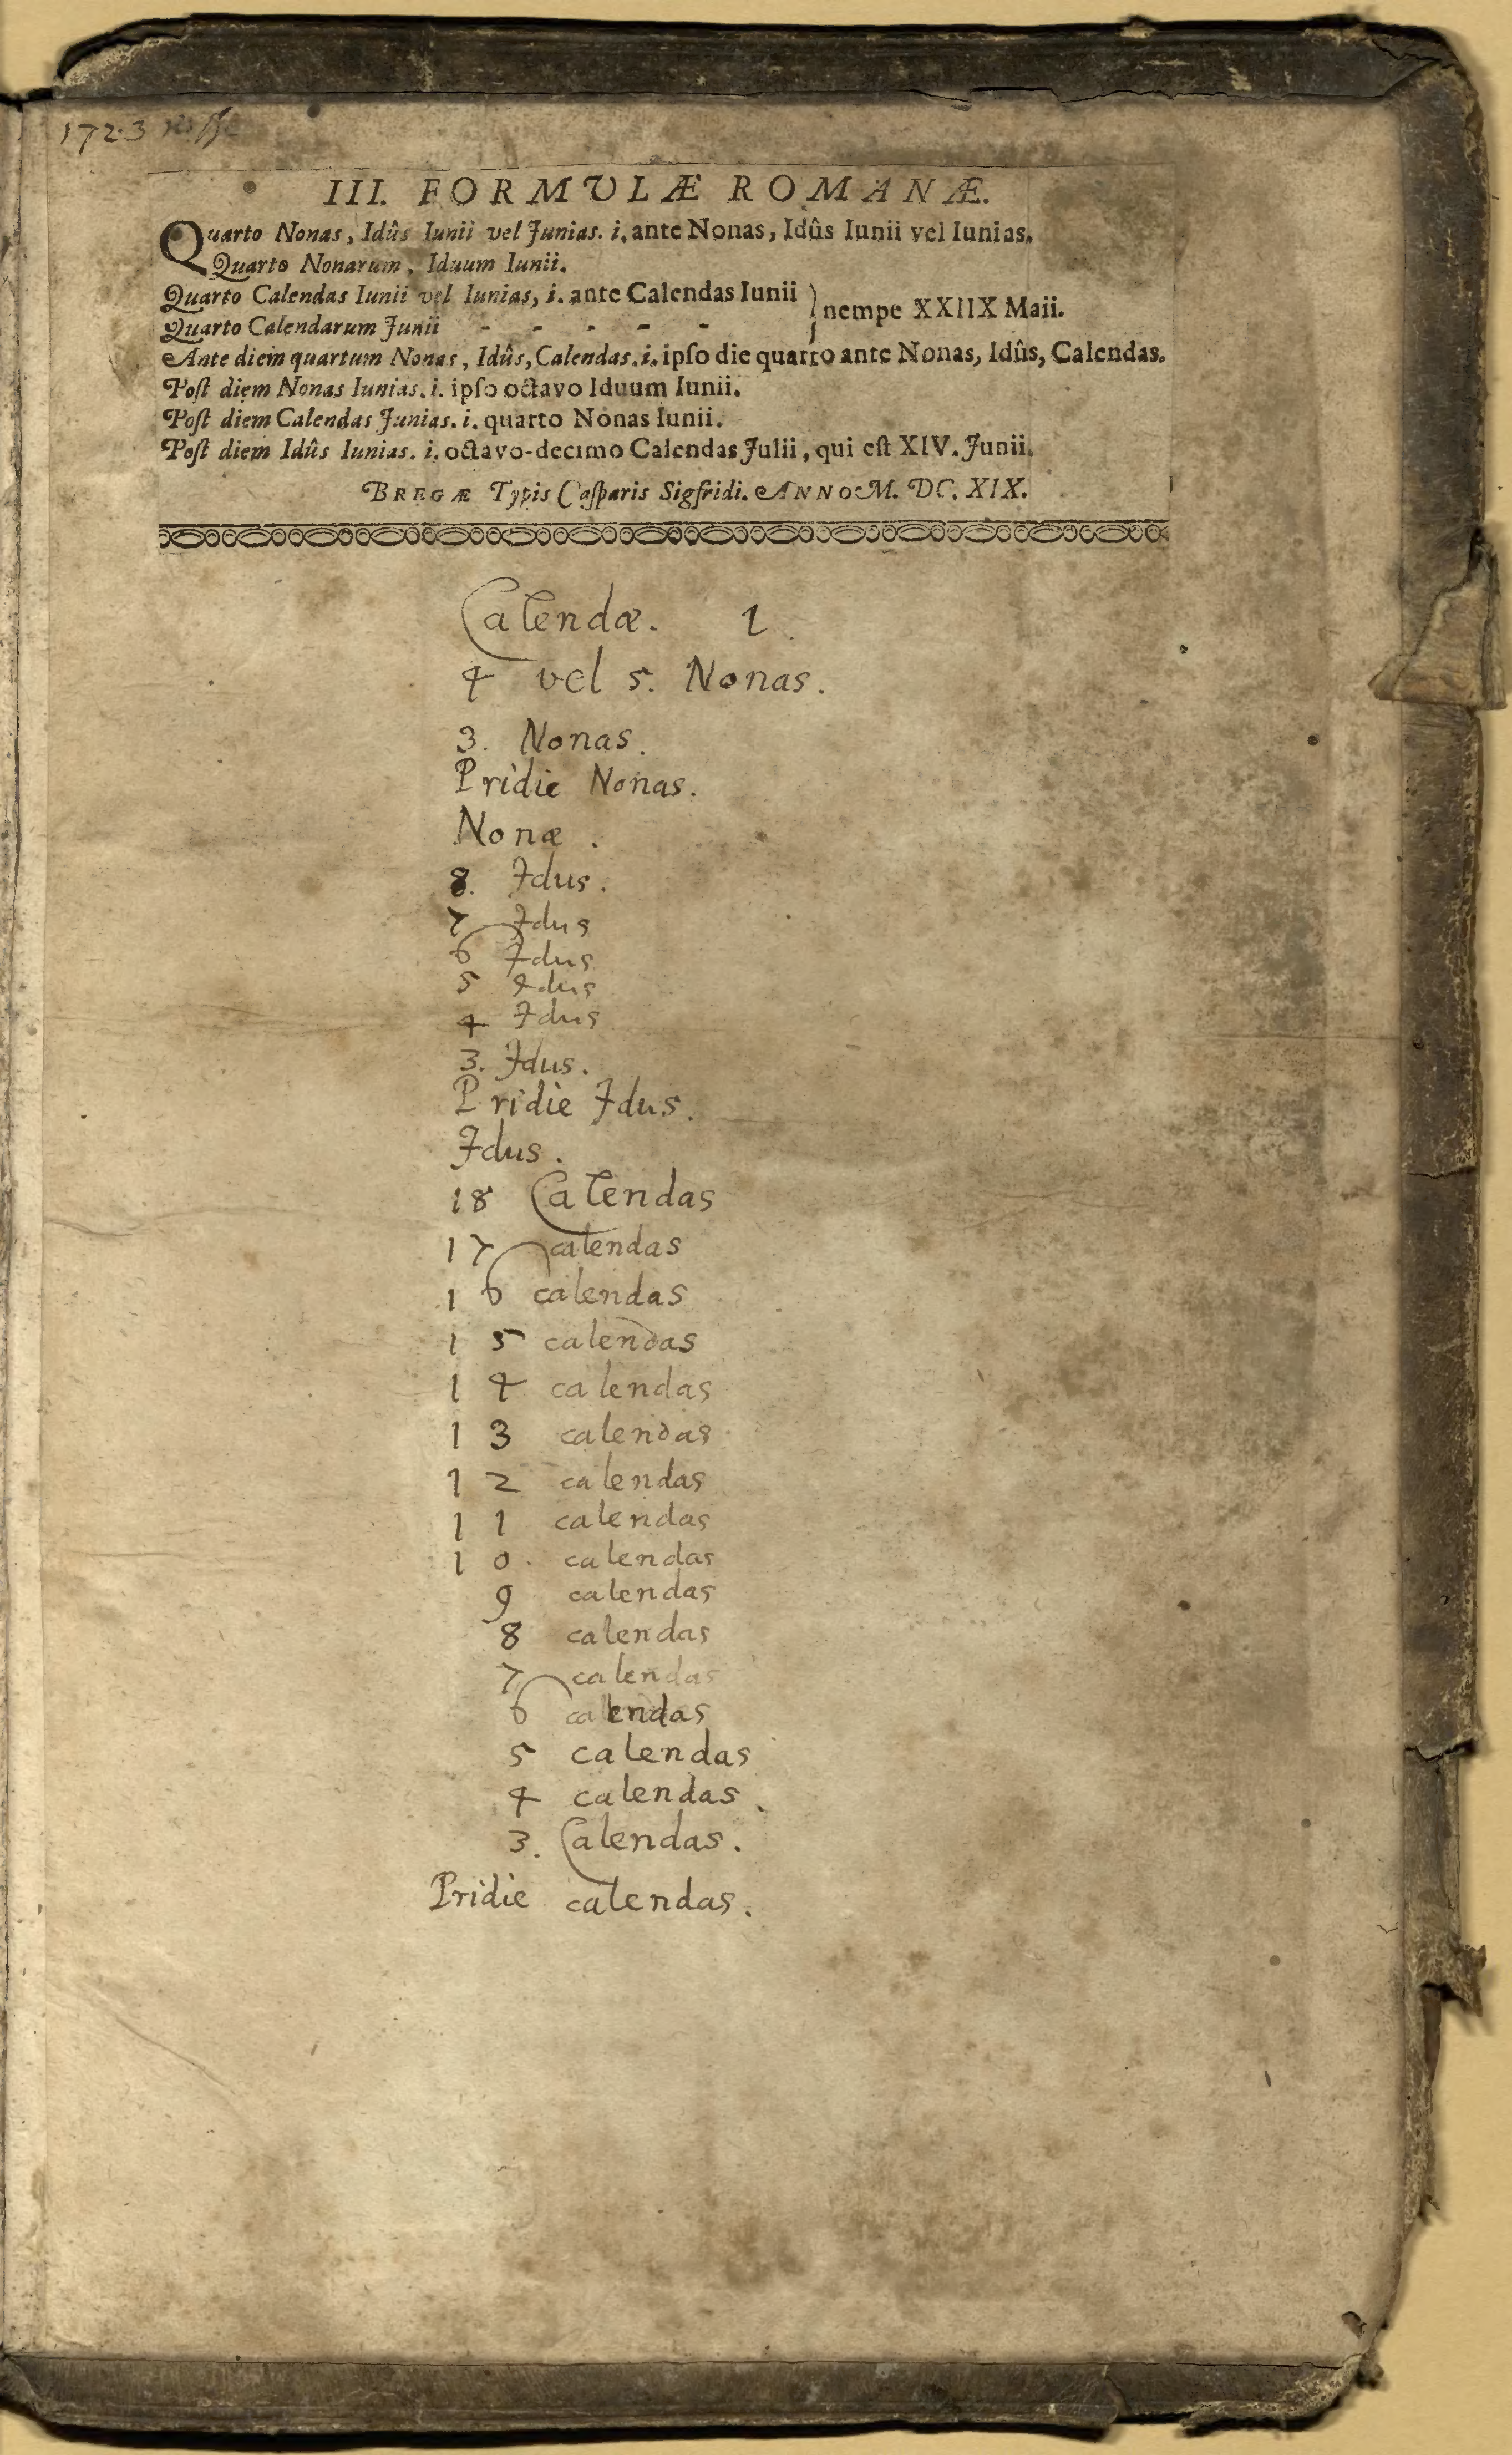 1723
III. FORMULÆ ROMANÆ.
Quarto Nonas, Idûs Iunii vel Junias. i. ante Nonas, Idûs Iunii vel Iunias.
Quarto Nonarum, Iduum Iunii.
Quarto Calendas Iunii vel Iunias, i. ante Calendas Iunii } nempe XXIIX Maii.
Quarto Calendarum Junii - - - - -
Ante diem quartum Nonas, Idûs, Calendas. i. ipſo die quarto ante Nonas, Idûs, Calendas.
Poſt diem Nonas Iunias. i. ipſo octavo Iduum Iunii.
Poſt diem Calendas Junias. i. quarto Nonas Iunii.
Poſt diem Idûs Iunias. i. octavo-decimo Calendas Julii, qui eſt XIV. Junii.
BREGÆ Typis Caſparis Sigfridi. ANNO M. DC. XIX.
Calendæ. 1
4 vel 5. Nonas.
3. Nonas.
Pridie Nonas.
Nonæ.
8. Idus.
7 Idus
6 Idus
5 Idus
4 Idus
3. Idus.
Pridie Idus.
Idus.
18 Calendas
17 calendas
16 calendas
15 calendas
14 calendas
13 calendas
12 calendas
11 calendas
10. calendas
9 calendas
8 calendas
7 calendas
6 calendas
5 calendas
4 calendas.
3. Calendas.
Pridie calendas.